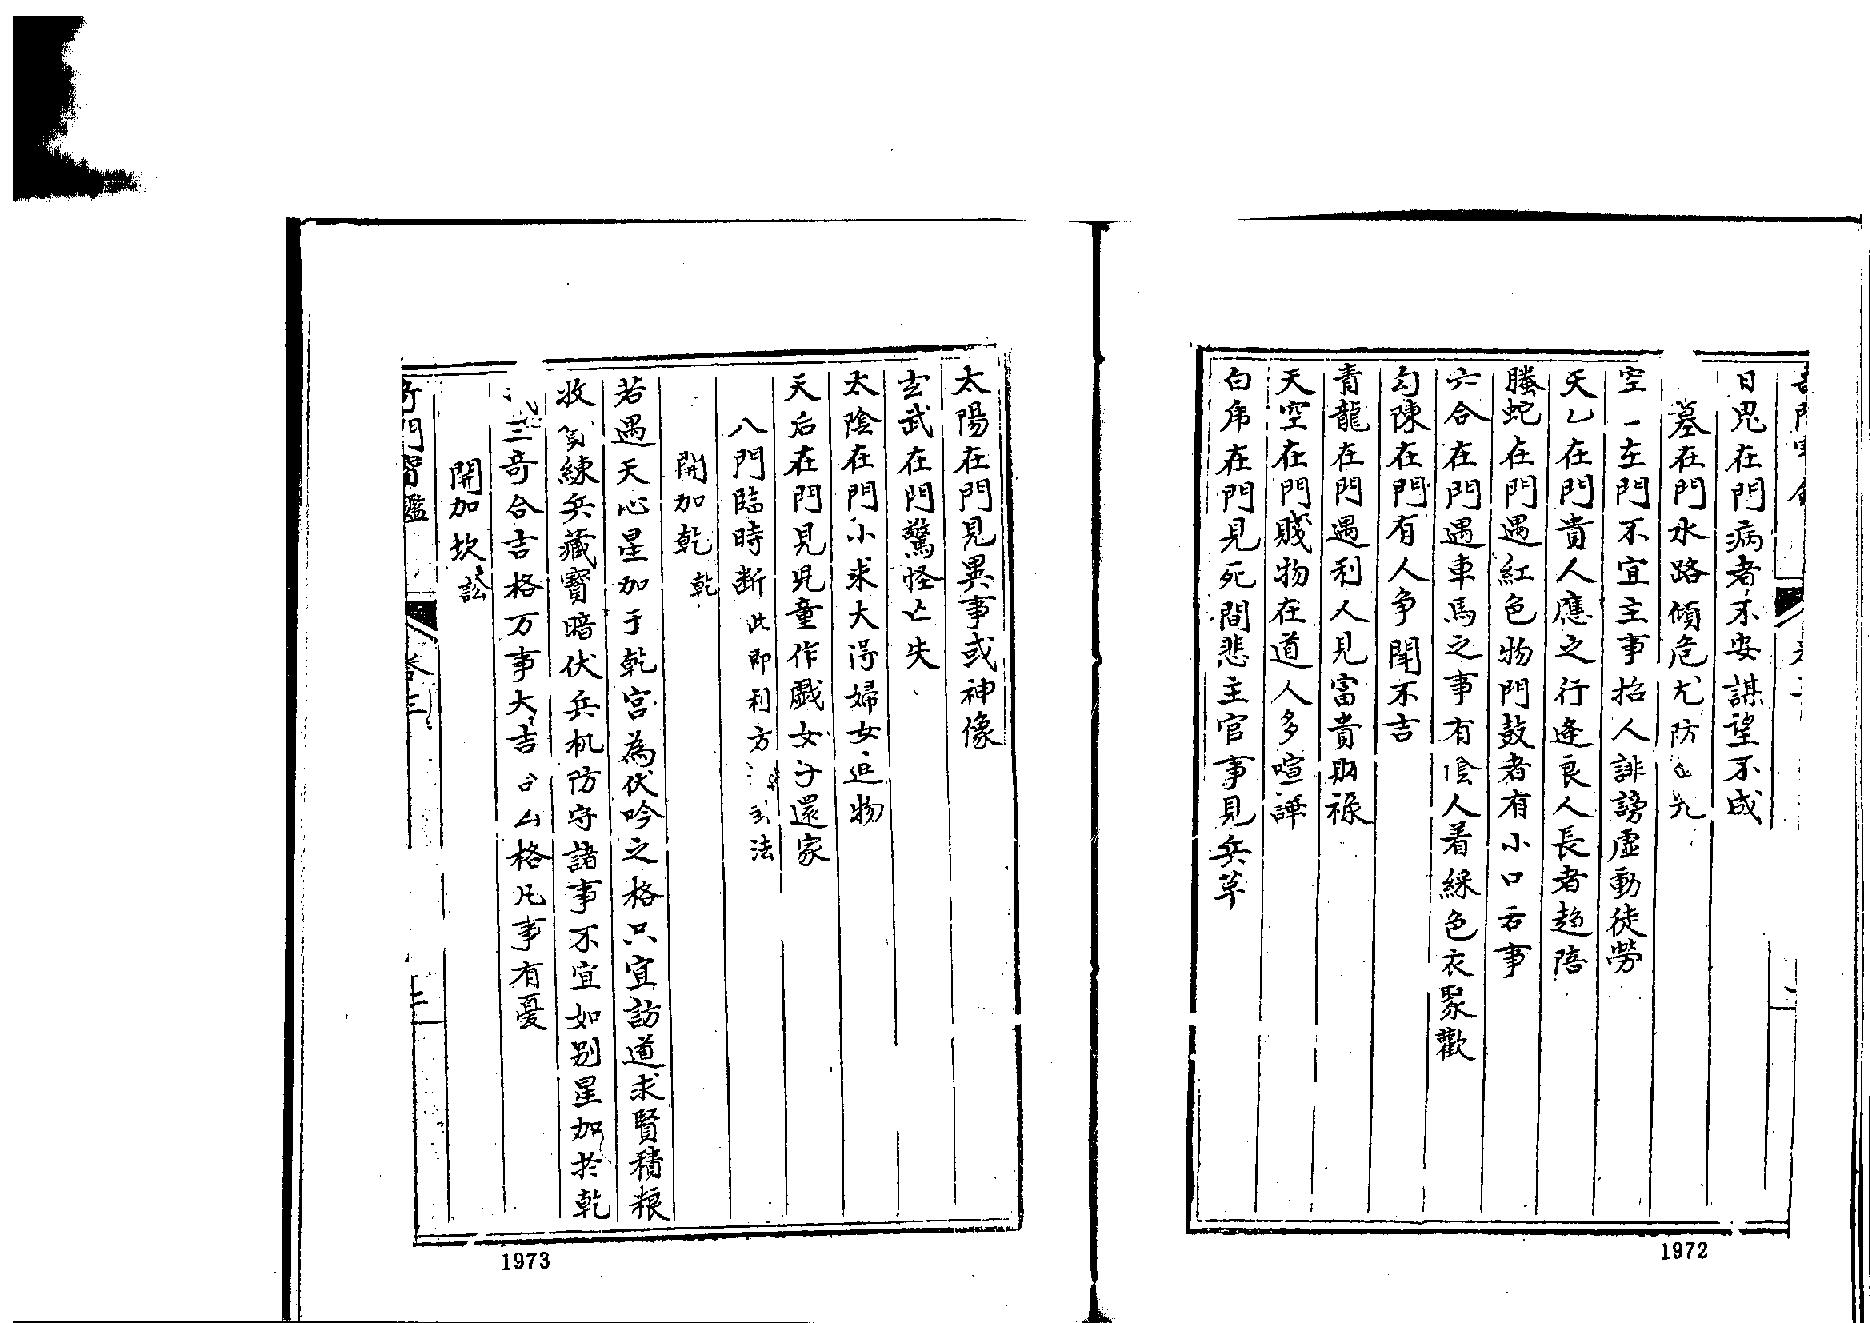 日鬼在門病者不安謀望不成
墓在門水路傾危尤防
空亡在門不宜主事招人誹謗虛動徒勞
天乙在門貴人應之行逢良人長者趋陪
螣蛇在門遇紅色物門鼓者有小口舌事
六合在門遇車馬之事有陰人着綵色衣聚歡
勾陳在門有人争鬪不吉
青龍在門遇利人見富貴財祿
天空在門賤物在道人多喧譁
白帍在門見死閗悲主官事見兵革
1972
太陽在門見異事或神像
玄武在門驚怪亡失
太陰在門小求大淂婦女 物
天后在門見児童作戯女子還家
八門臨時断 此即利方 法
開加乾 乾
若遇天心星加于乾宮為伏吟之格只宜訪道求賢積粮
收 練兵藏寳暗伏兵机防守諸事不宜如别星加於乾
三竒合吉格万事大吉合凶格凡事有憂
開加坎 訟
竒門寳鑑 卷三
1973